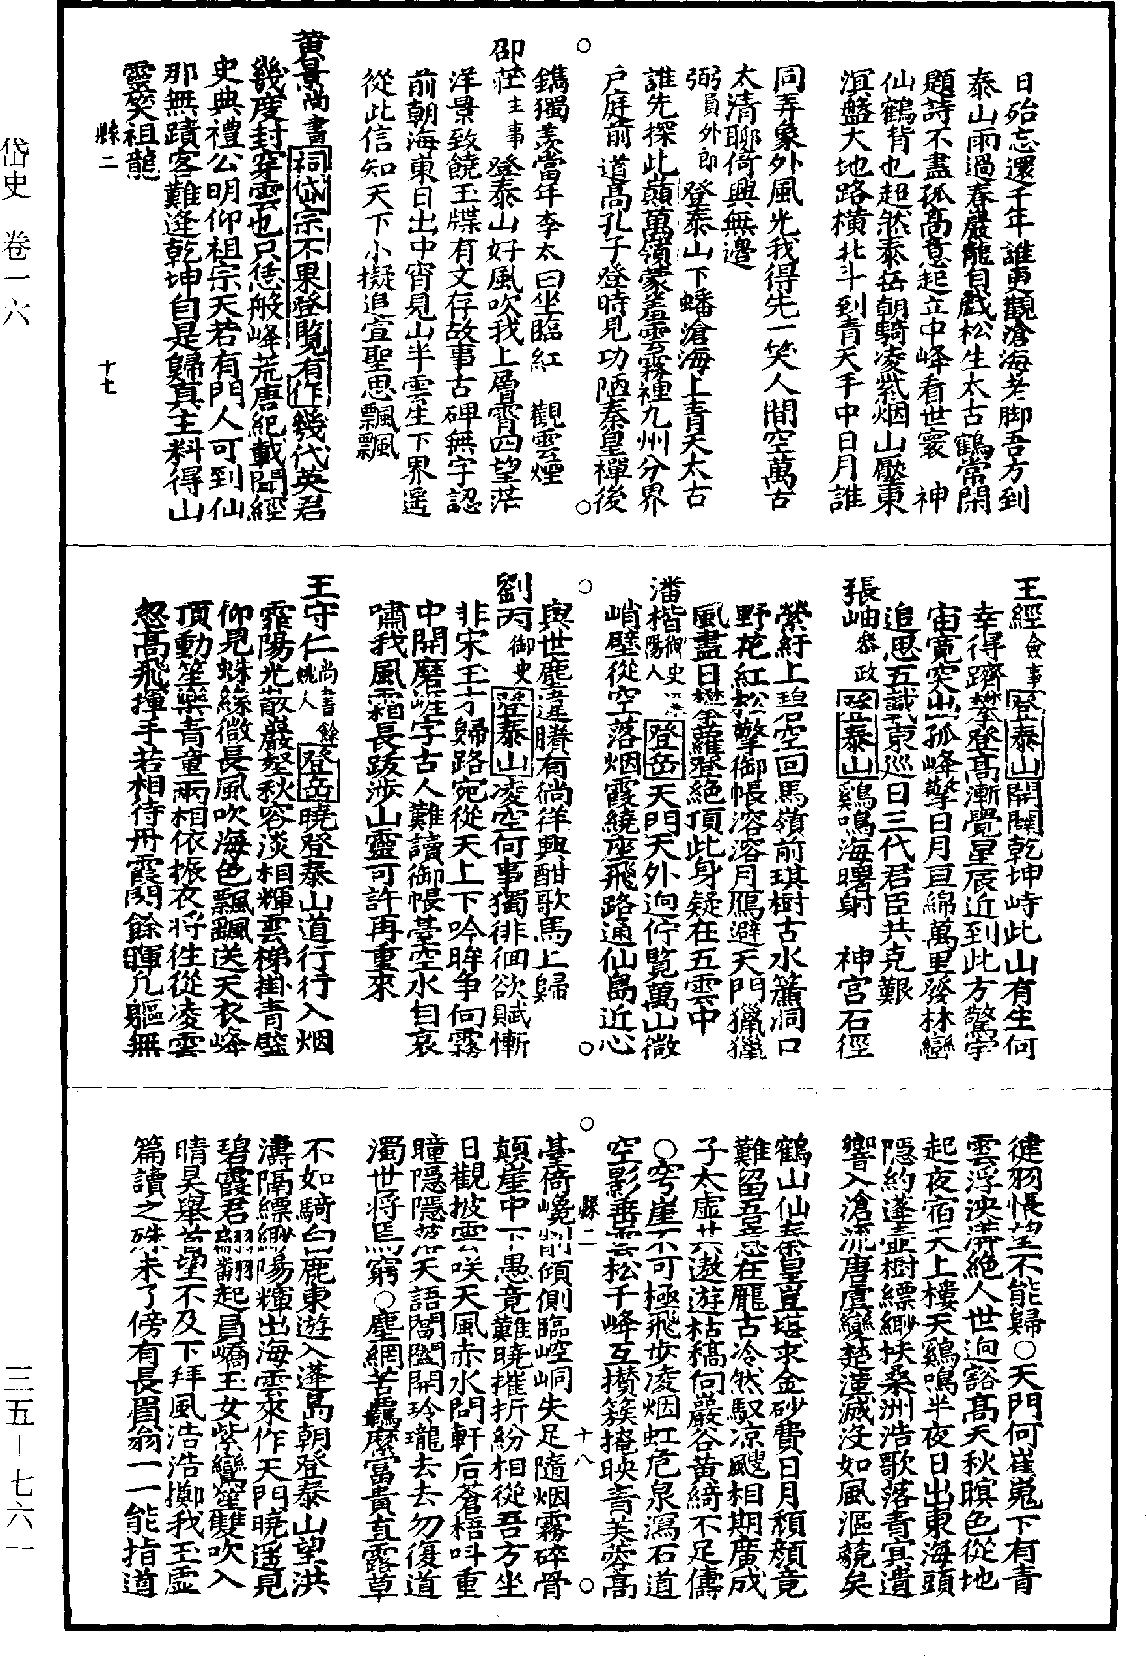 岱史 卷一六
三五—七六一
日殆忘還千年誰更觀滄海老脚吾方到
泰山雨過春巖龍自戲松生太古鶴常閑
題詩不盡孤高意起立中峰看世寰 神
仙鶴背也超然泰岳朝騎凌紫烟山壓東
溟盤大地路橫北斗到青天手中日月誰
同弄象外風光我得先一笑人間空萬古
太清聊倚興無邊
弼員外郎登泰山下蟠滄海上青天太古
誰先探此巔萬嶺蒙羞雲霧裡九州分界
戶庭前道高孔子登時見功陋秦皇禪後
鐫獨羨當年李太白坐臨紅 觀雲煙
邵莊主事登泰山好風吹我上層霄四望茫
洋景致饒玉牒有文存故事古碑無字認
前朝海東日出中宵見山半雲生下界遙
從此信知天下小擬追宣聖思飄飄
黃景尚書祠岱宗不果登覽有作幾代英君
幾度封穿雲也只恁般峰荒唐紀載聞經
史典禮公明仰祖宗天若有門人可到仙
那無蹟客難逢乾坤自是歸真主料得山
靈笑祖龍
縣二 十七
王經僉事登泰山開闢乾坤峙此山有生何
幸得躋攀登高漸覺星辰近到此方驚宇
宙寬突出孤峰擎日月亘綿萬里發林巒
追思五載東巡日三代君臣共克艱
張岫參政登泰山鷄鳴海曙射 神宮石徑
縈紆上碧空回馬嶺前琪樹古水簾洞口
野花紅松擎御帳溶溶月鴈避天門獵獵
風盡日攀蘿登絕頂此身疑在五雲中
潘楷御史 陽人登岳天門天外迥佇覽萬山微
峭壁從空落烟霞繞座飛路通仙島近心
與世塵違賸有徜徉興酣歌馬上歸
劉丙御史登泰山凌空何事獨徘徊欲賦慚
非宋玉才歸路宛從天上下吟眸爭向霧
中開磨崖字古人難讀御帳臺空水自哀
嘯我風霜長跋涉山靈可許再重來
王守仁尚書餘姚人登岳曉登泰山道行行入烟
霏陽光散巖壑秋容淡相輝雲梯掛青壁
仰見蛛絲微長風吹海色飄飄送天衣峰
頂動笙樂青童兩相依振衣將往從凌雲
忽高飛揮手若相待丹霞閃餘暉凡軀無
健羽悵望不能歸○天門何崔嵬下有青
雲浮泱漭絕人世迥豁高天秋暝色從地
起夜宿天上樓天鷄鳴半夜日出東海頭
隱約蓬壺樹縹緲扶桑洲浩歌落青冥遺
響入滄流唐虞變楚漢滅沒如風漚藐矣
鶴山仙秦皇豈堪求金砂費日月頹顏竟
難留吾意在龐古冷然馭凉颸相期廣成
子太虛共遨遊枯槁向巖谷黃綺不足儔
○穹崖不可極飛步凌烟虹危泉瀉石道
空影垂雲松千峰互攢簇掩映青芙蓉高
縣二 十八
臺倚巉削傾側臨崆峒失足隨烟霧碎骨
顛崖中下愚竟難曉摧折紛相從吾方坐
日觀披雲咲天風赤水問軒后蒼梧呌重
瞳隱隱落天語閶闔開玲瓏去去勿復道
濁世將焉窮○塵網苦羈縻富貴真露草
不如騎白鹿東遊入蓬島朝登泰山望洪
濤隔縹緲陽輝出海雲來作天門曉遙見
碧霞君翩翩起員嶠玉女紫鸞笙雙吹入
晴昊舉首望不及下拜風浩浩擲我玉虛
篇讀之殊未了傍有長眉翁一一能指道